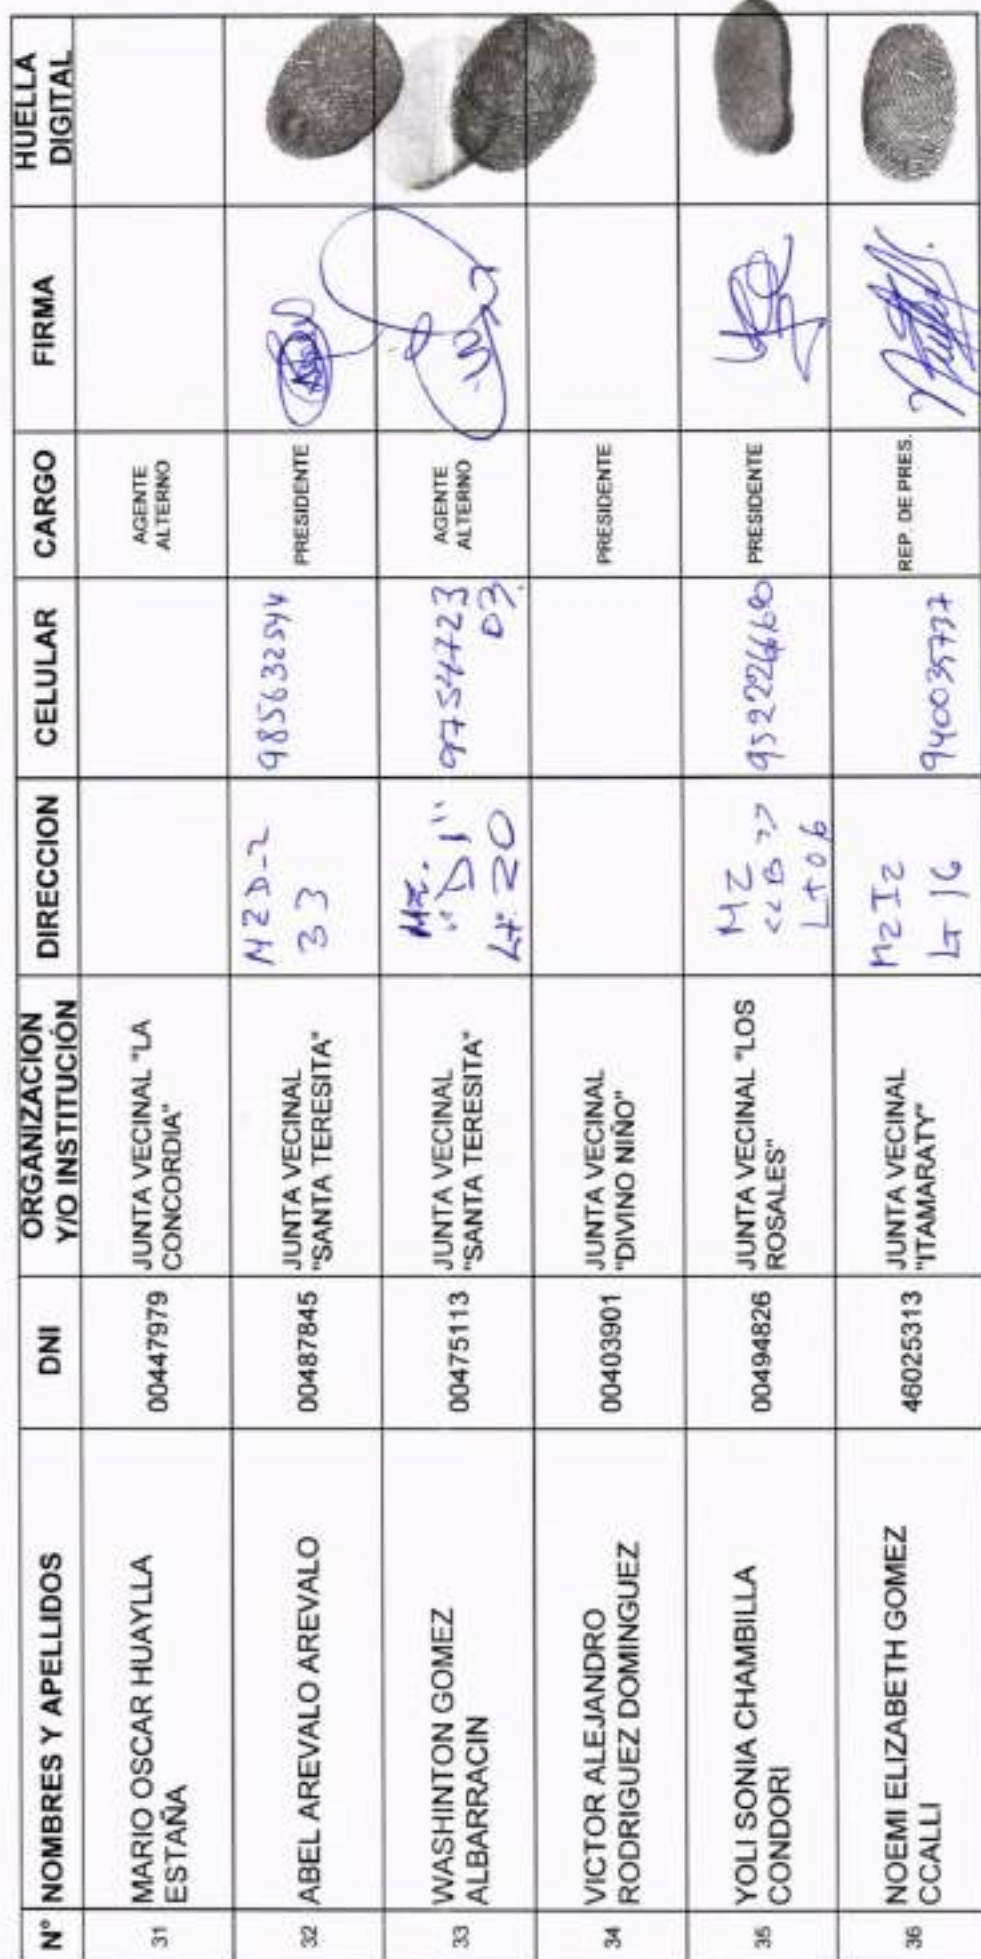 N° NOMBRES Y APELLIDOS DNI ORGANIZACION Y/O INSTITUCIÓN DIRECCION CELULAR CARGO FIRMA HUELLA DIGITAL
31 MARIO OSCAR HUAYLLA ESTAÑA 00447979 JUNTA VECINAL "LA CONCORDIA" AGENTE ALTERNO
32 ABEL AREVALO AREVALO 00487845 JUNTA VECINAL "SANTA TERESITA" MZD-2 33 985632544 PRESIDENTE
33 WASHINTON GOMEZ ALBARRACIN 00475113 JUNTA VECINAL "SANTA TERESITA" Mz. "D1" Lt. 20 975472303 AGENTE ALTERNO
34 VICTOR ALEJANDRO RODRIGUEZ DOMINGUEZ 00403901 JUNTA VECINAL "DIVINO NIÑO" PRESIDENTE
35 YOLI SONIA CHAMBILLA CONDORI 00494826 JUNTA VECINAL "LOS ROSALES" MZ <<B>> Lt06 PRESIDENTE
36 NOEMI ELIZABETH GOMEZ CCALLI 46025313 JUNTA VECINAL "ITAMARATY" MzI2 LT 16 940035737 REP. DE PRES.